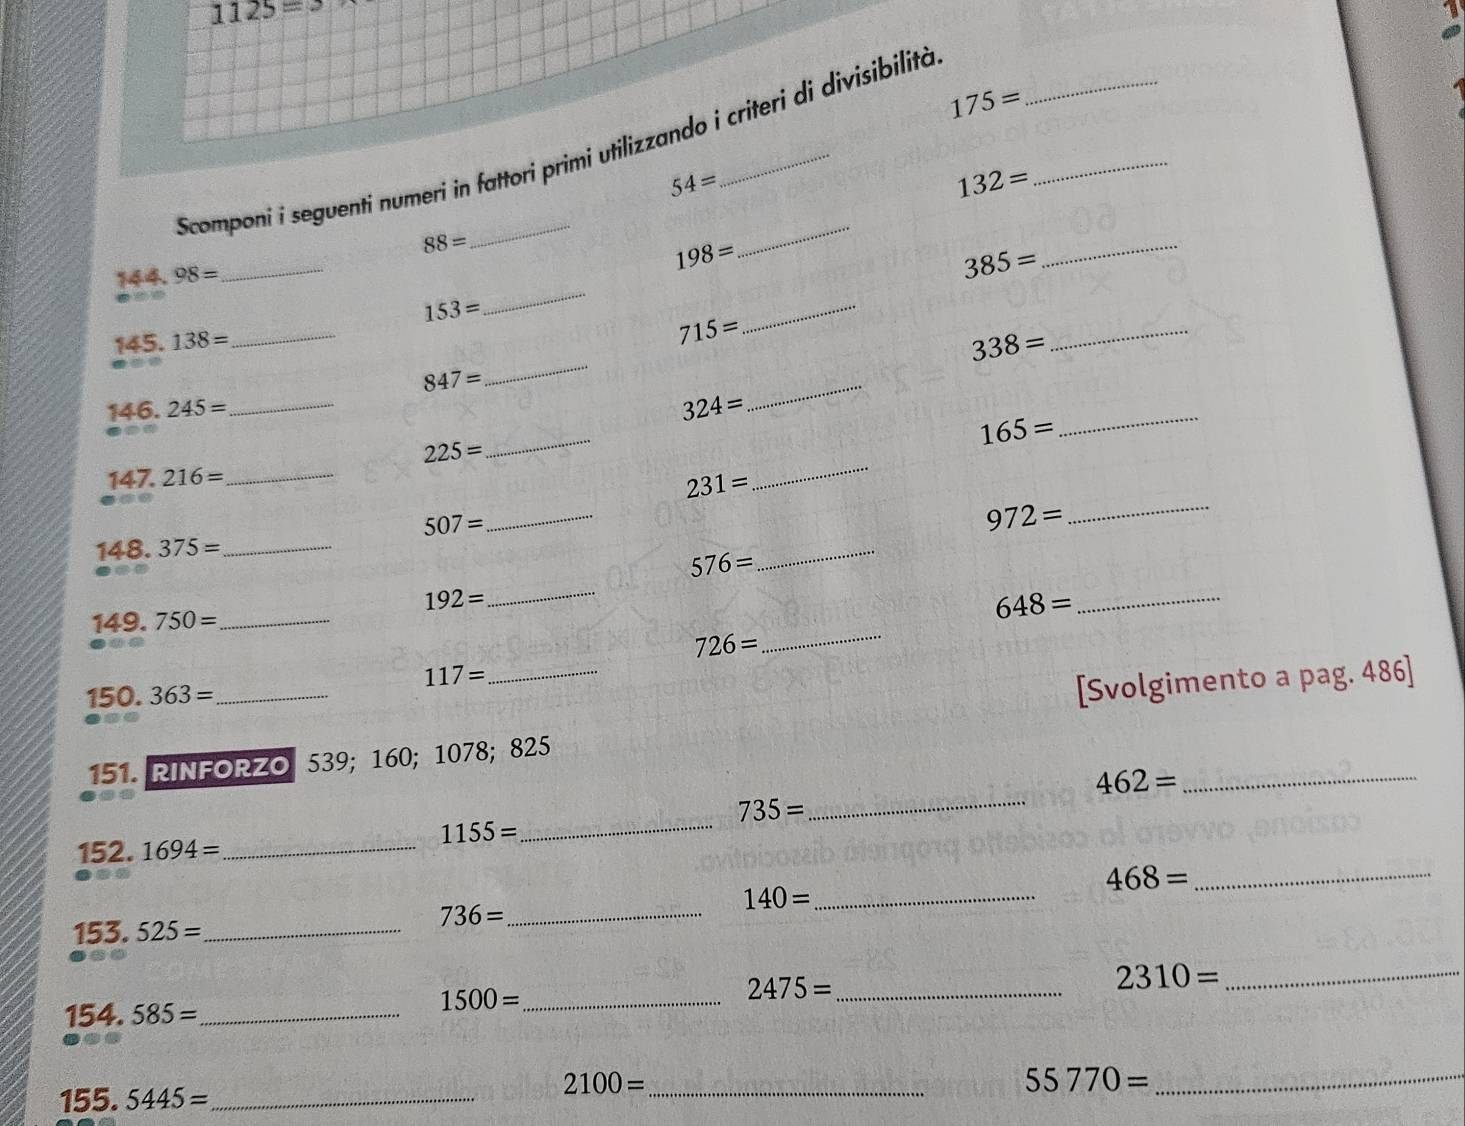 1125 =
Scomponi i seguenti numeri in fattori primi utilizzando i criteri di divisibilità.
144. 98 = 88 = 54 = 175 =
145. 138 = 153 = 198 = 132 =
146. 245 = 847 = 715 = 385 =
147. 216 = 225 = 324 = 338 =
148. 375 = 507 = 231 = 165 =
149. 750 = 192 = 576 = 972 =
150. 363 = 117 = 726 = 648 =
[Svolgimento a pag. 486]
151. RINFORZO 539; 160; 1078; 825
152. 1694 = 1155 = 735 = 462 =
153. 525 = 736 = 140 = 468 =
154. 585 = 1500 = 2475 = 2310 =
155. 5445 = 2100 = 55 770 =